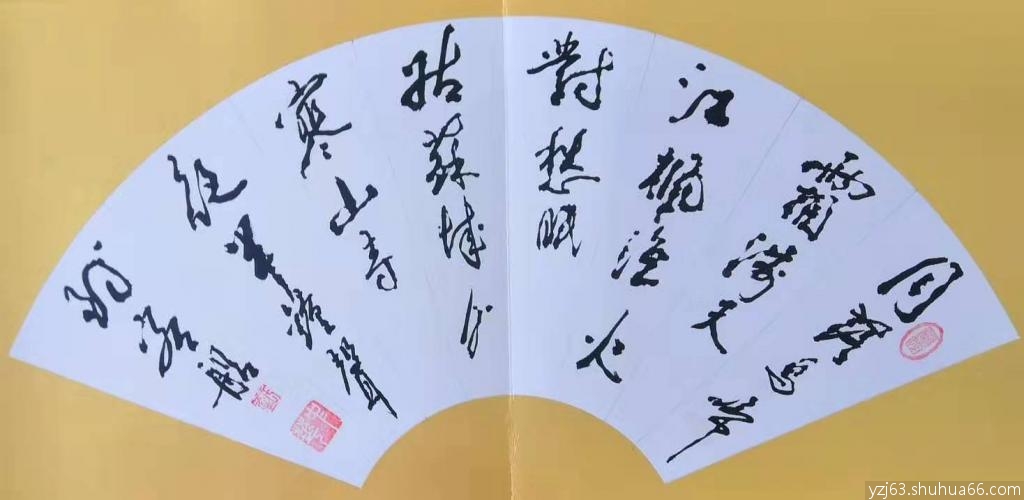 月落烏啼
霜滿天
江楓漁火
對愁眠
姑蘇城外
寒山寺
夜半鐘聲
到客船
yzj63.shuhua66.com